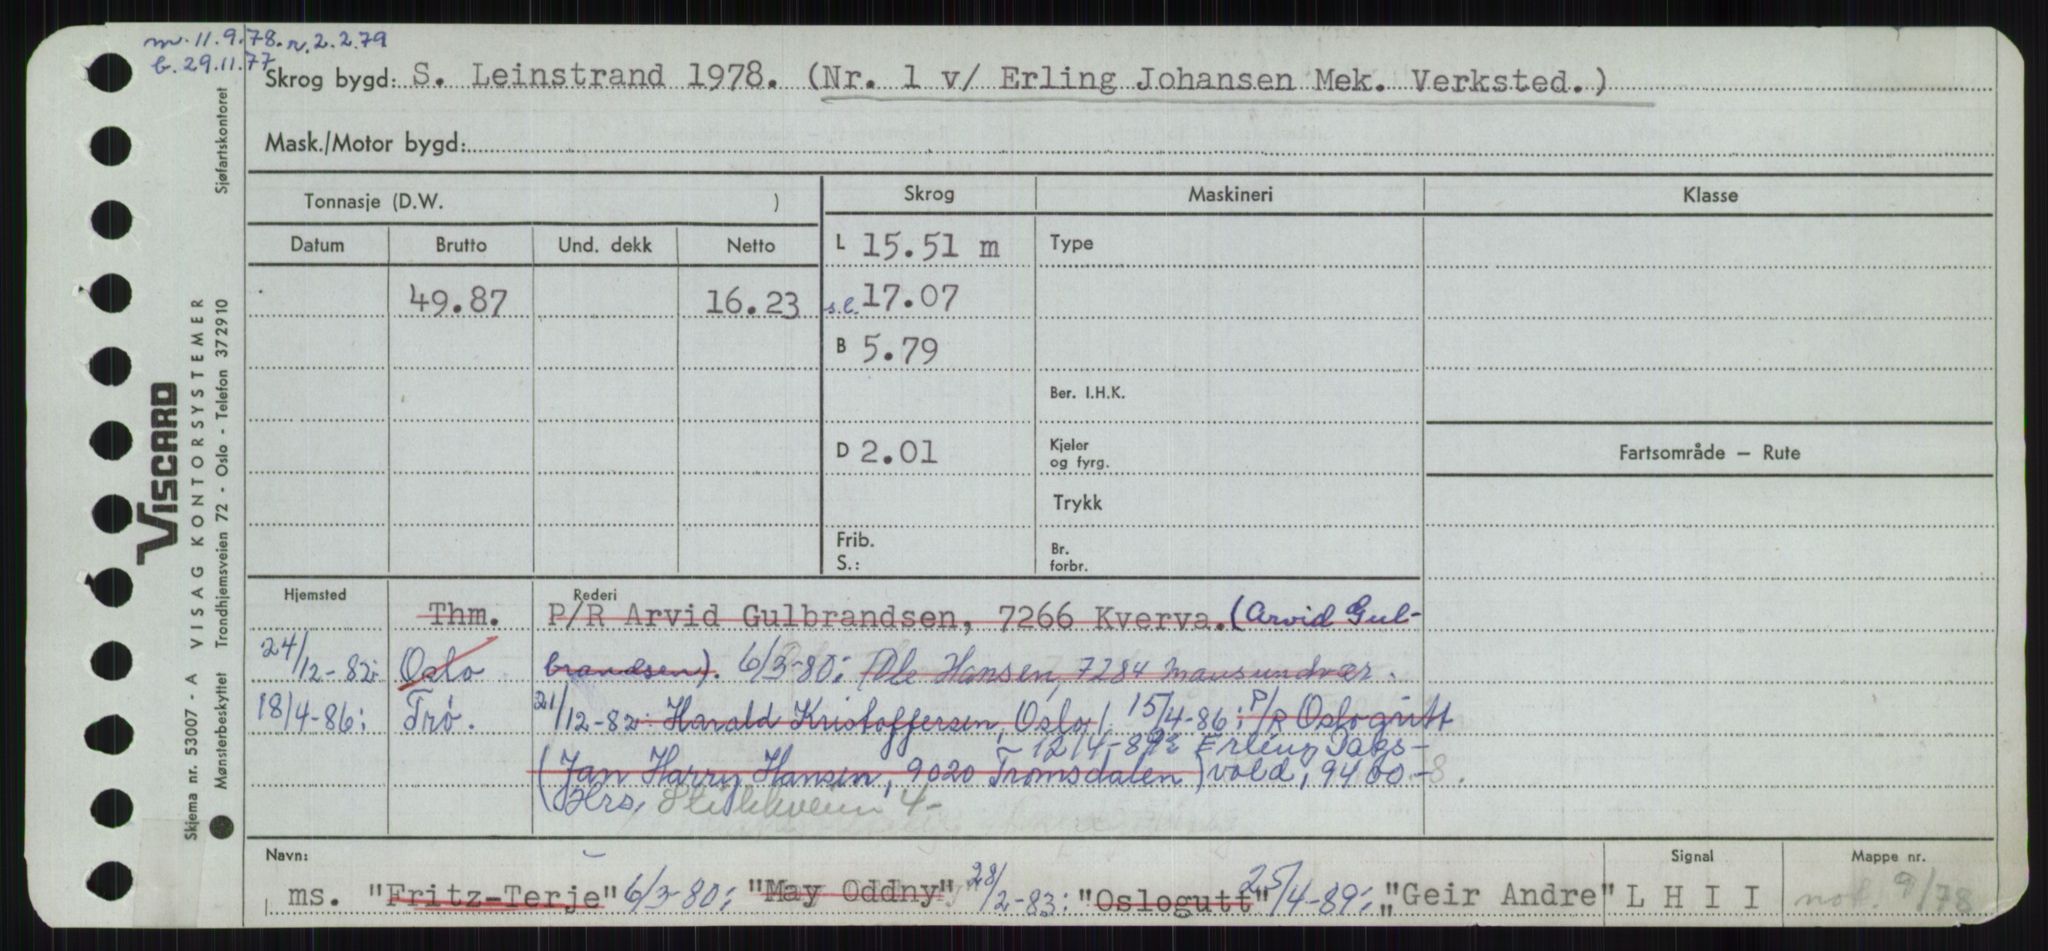 m. 11.9.78. r. 2.2.79
b. 29.11.77
Skrog bygd: S. Leinstrand 1978. (Nr. 1 v/ Erling Johansen Mek. Verksted.)
Mask./Motor bygd:
Tonnasje (D.W. )
Skrog
Maskineri
Klasse
Datum Brutto Und. dekk Netto
L 15.51 m
Type
49.87 16.23
s.l. 17.07
B 5.79
Ber. I.H.K.
D 2.01
Kjeler
og fyrg.
Fartsområde — Rute
Trykk
Frib.
S.:
Br.
forbr.
Hjemsted
Thm.
Rederi
P/R Arvid Gulbrandsen, 7266 Kverva. (Arvid Gul-
24/12-82: Oslo
brandsen). 6/3-80: Ole Hansen, 7284 Mausundvær.
18/4-86: Trø.
21/12-82: Harald Kristoffersen, Oslo, 15/4-86: P/R Oslogutt
12/4-89: Erling Dags-
(Jan Harry Hansen, 9020 Tromsdalen) vold, 9400-
Hrs,
4-
Navn:
ms. "Fritz-Terje" 6/3-80: "May Oddny" 28/2-83: "Oslogutt" 25/4-89: "Geir Andre"
Signal
L H I I
Mappe nr.
not. 9/78
Sjøfartskontoret
VISCARD
VISAG KONTORSYSTEMER
Trondhjemsveien 72 - Oslo - Telefon 372910
Skjema nr. 53007 - A
Mønsterbeskyttet